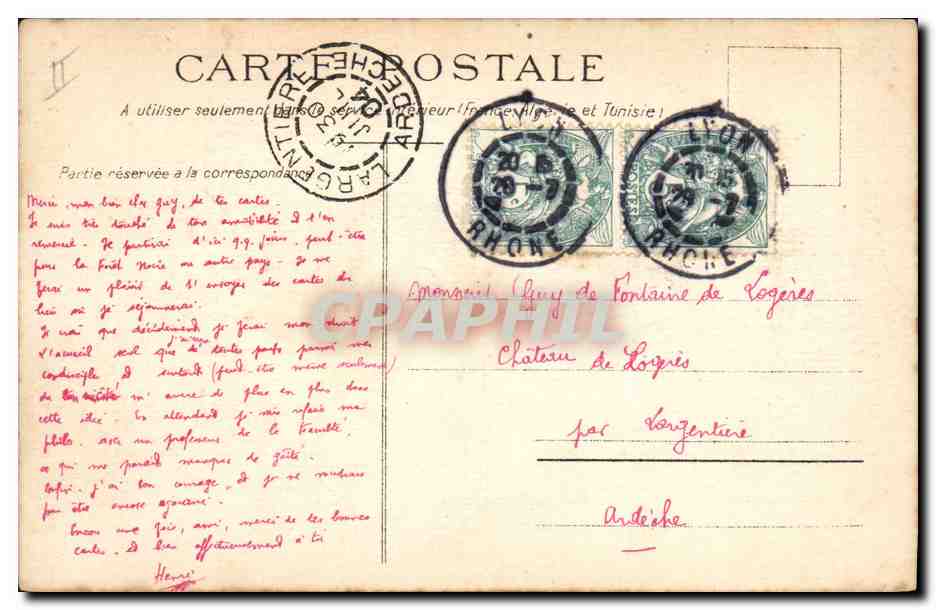 II
CARTE POSTALE
A utiliser seulement dans le service intérieur (France, Algérie et Tunisie)
LARGENTIERE ARDECHE
04
LYON
20 15
28 -7
RHONE
LYON
20 15
28 -7
RHONE
Partie réservée a la correspondance
Merci, mon bien cher Guy, de tes cartes.
Je suis très touché de ton amabilité et t'en
remercie. Je partirai d'ici q.q. jours, peut-être
pour la Forêt Noire ou autre pays. Je me
ferai un plaisir de t'envoyer des cartes du
lieu où je séjournerai.
Je crois que décidément je ferai mon droit
L'accueil seul que j'ai de toutes parts parmi mes
et surtout (peut-être même seulement)
du m'ancre de plus en plus dans
cette idée. En attendant je suis refais ma
philo. avec un professeur de la
ce qui me paraît manquer de gaîté.
Enfin j'ai bon courage, et je ne voudrais
pas être encore
Encore une fois, ami, merci de tes bonnes
cartes. Et bien affectueusement à toi
Henri
Monsieur Guy de Fontaine de Logères
Château de Logères
par Largentière
Ardèche
CPAPHIL